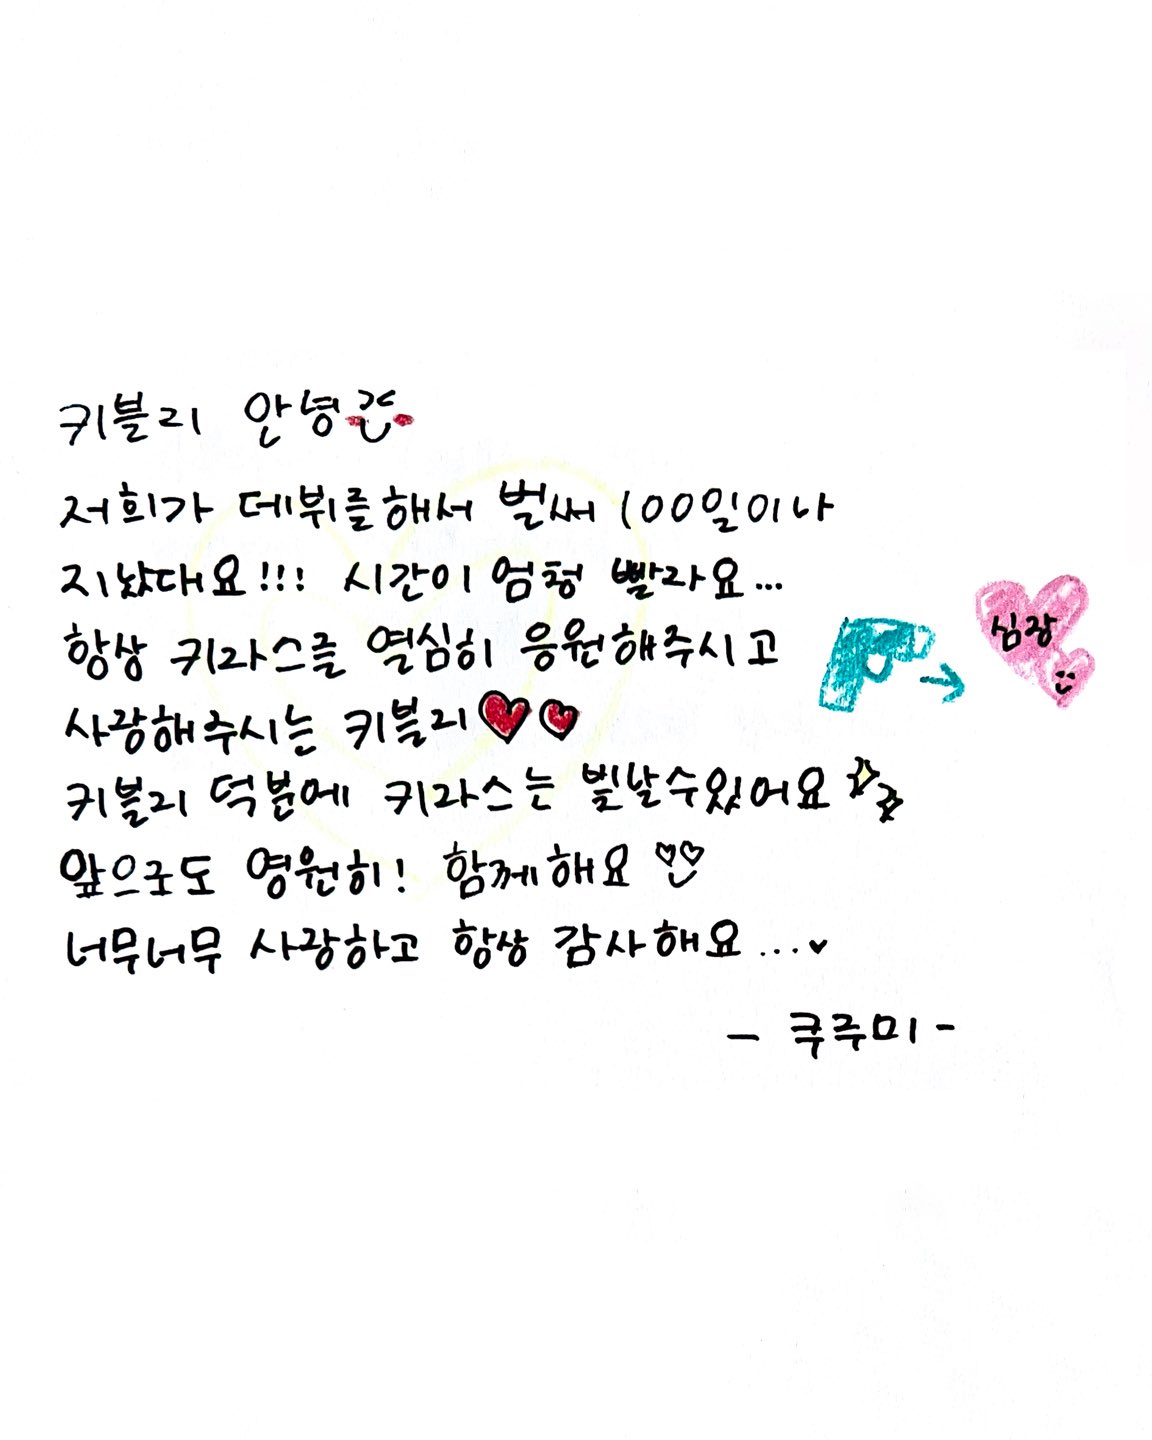 키블리 안녕
저희가 데뷔를해서 벌써 100일이나
지났대요!!! 시간이 엄청 빨라요...
항상 키라스를 열심히 응원해주시고
심장
사랑해주시는 키블리
키블리 덕분에 키라스는 빛날수있어요
앞으로도 영원히! 함께해요
너무너무 사랑하고 항상 감사해요...
- 쿠루미 -